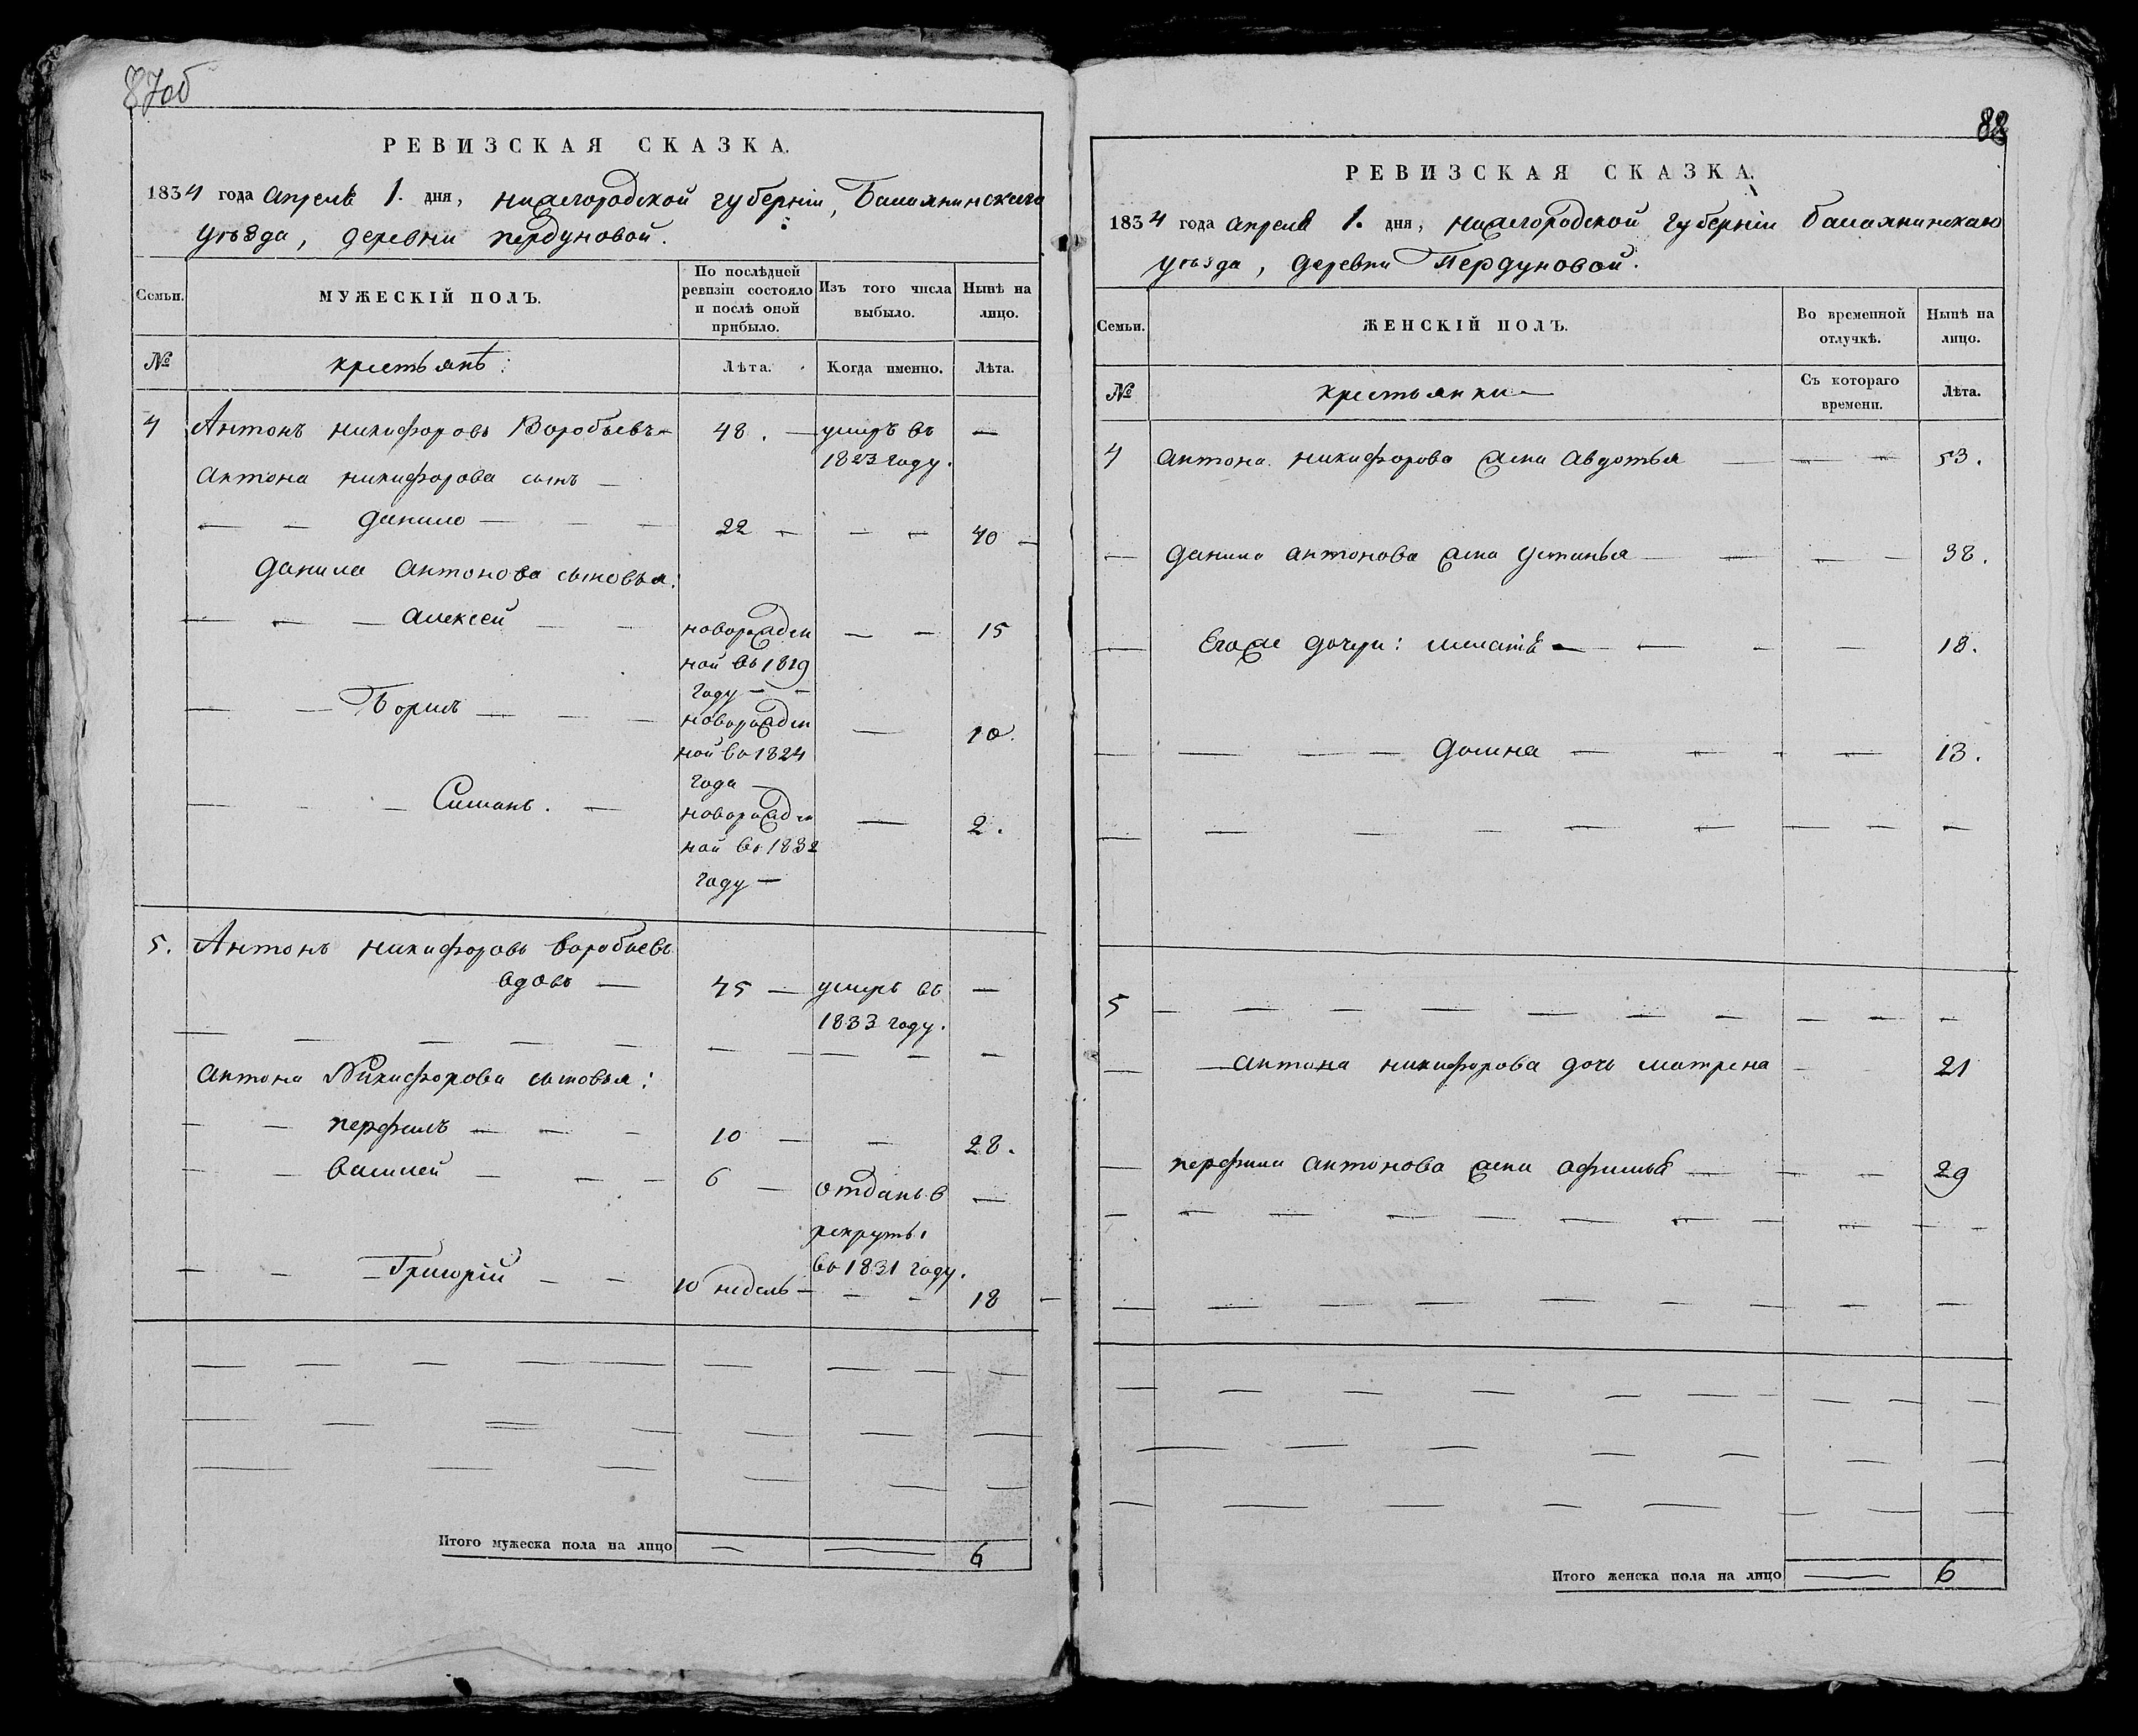 87об
РЕВИЗСКАЯ СКАЗКА.
1834 года апреля 1. дня, нижегородской губерніи, Балахнинскаго
уѣзда, деревни пердуновой.
Семьи.
МУЖЕСКІЙ ПОЛЪ.
По послѣдней
ревизіи состояло
и послѣ оной
прибыло.
Изъ того числа
выбыло.
Нынѣ на
лицо.
№
крестьянѣ:
Лѣта.
Когда именно.
Лѣта.
4 Антонъ никифоровъ Воробьевъ — 48. — умеръ въ —
1823 году.
антона никифорова сынъ —
— — данило — — — 22 — — — 40 —
данила антонова сыновья:
— — — алексей — — новорожден — — 15
ной въ 1819
году — —
— — Борисъ — — — новорожден — 10.
ной въ 1824
года —
— — — Симанъ. — новорожде — 2.
ной въ 1832
году —
5. Антонъ никифоровъ воробьевъ
вдовъ — 45 — умеръ въ —
1833 году.
— — — — — — — — — —
антона Никифорова сыновья:
— — перфилъ — — — 10 — — 28.
— — василей — — — 6 — отданъ в —
рекруты
въ 1831 году.
— — — Григорій — — 10 недель — — — 18 —
Итого мужеска пола на лицо — — 6
88
РЕВИЗСКАЯ СКАЗКА.
1834 года апреля 1. дня, нижегородской губерніи балахнинскаго
уѣзда, деревни Пердуновой.
Семьи.
ЖЕНСКІЙ ПОЛЪ.
Во временной
отлучкѣ.
Нынѣ на
лицо.
№
крестьянки —
Съ котораго
времени.
Лѣта.
4 антона никифорова жена авдотья — — — 53.
— данила антонова жена устинья — — — — 38.
— Егоже дочери: — — — — 18.
— — — — домна — — — — 13.
— — — — — — — — —
5 — — — — — — — — — —
— — антона никифорова дочь матрена — — 21
— перфила антонова жена афимья — — — 29
— — — — — — — — — — —
— — — — — — — — — —
Итого женска пола на лицо — 6